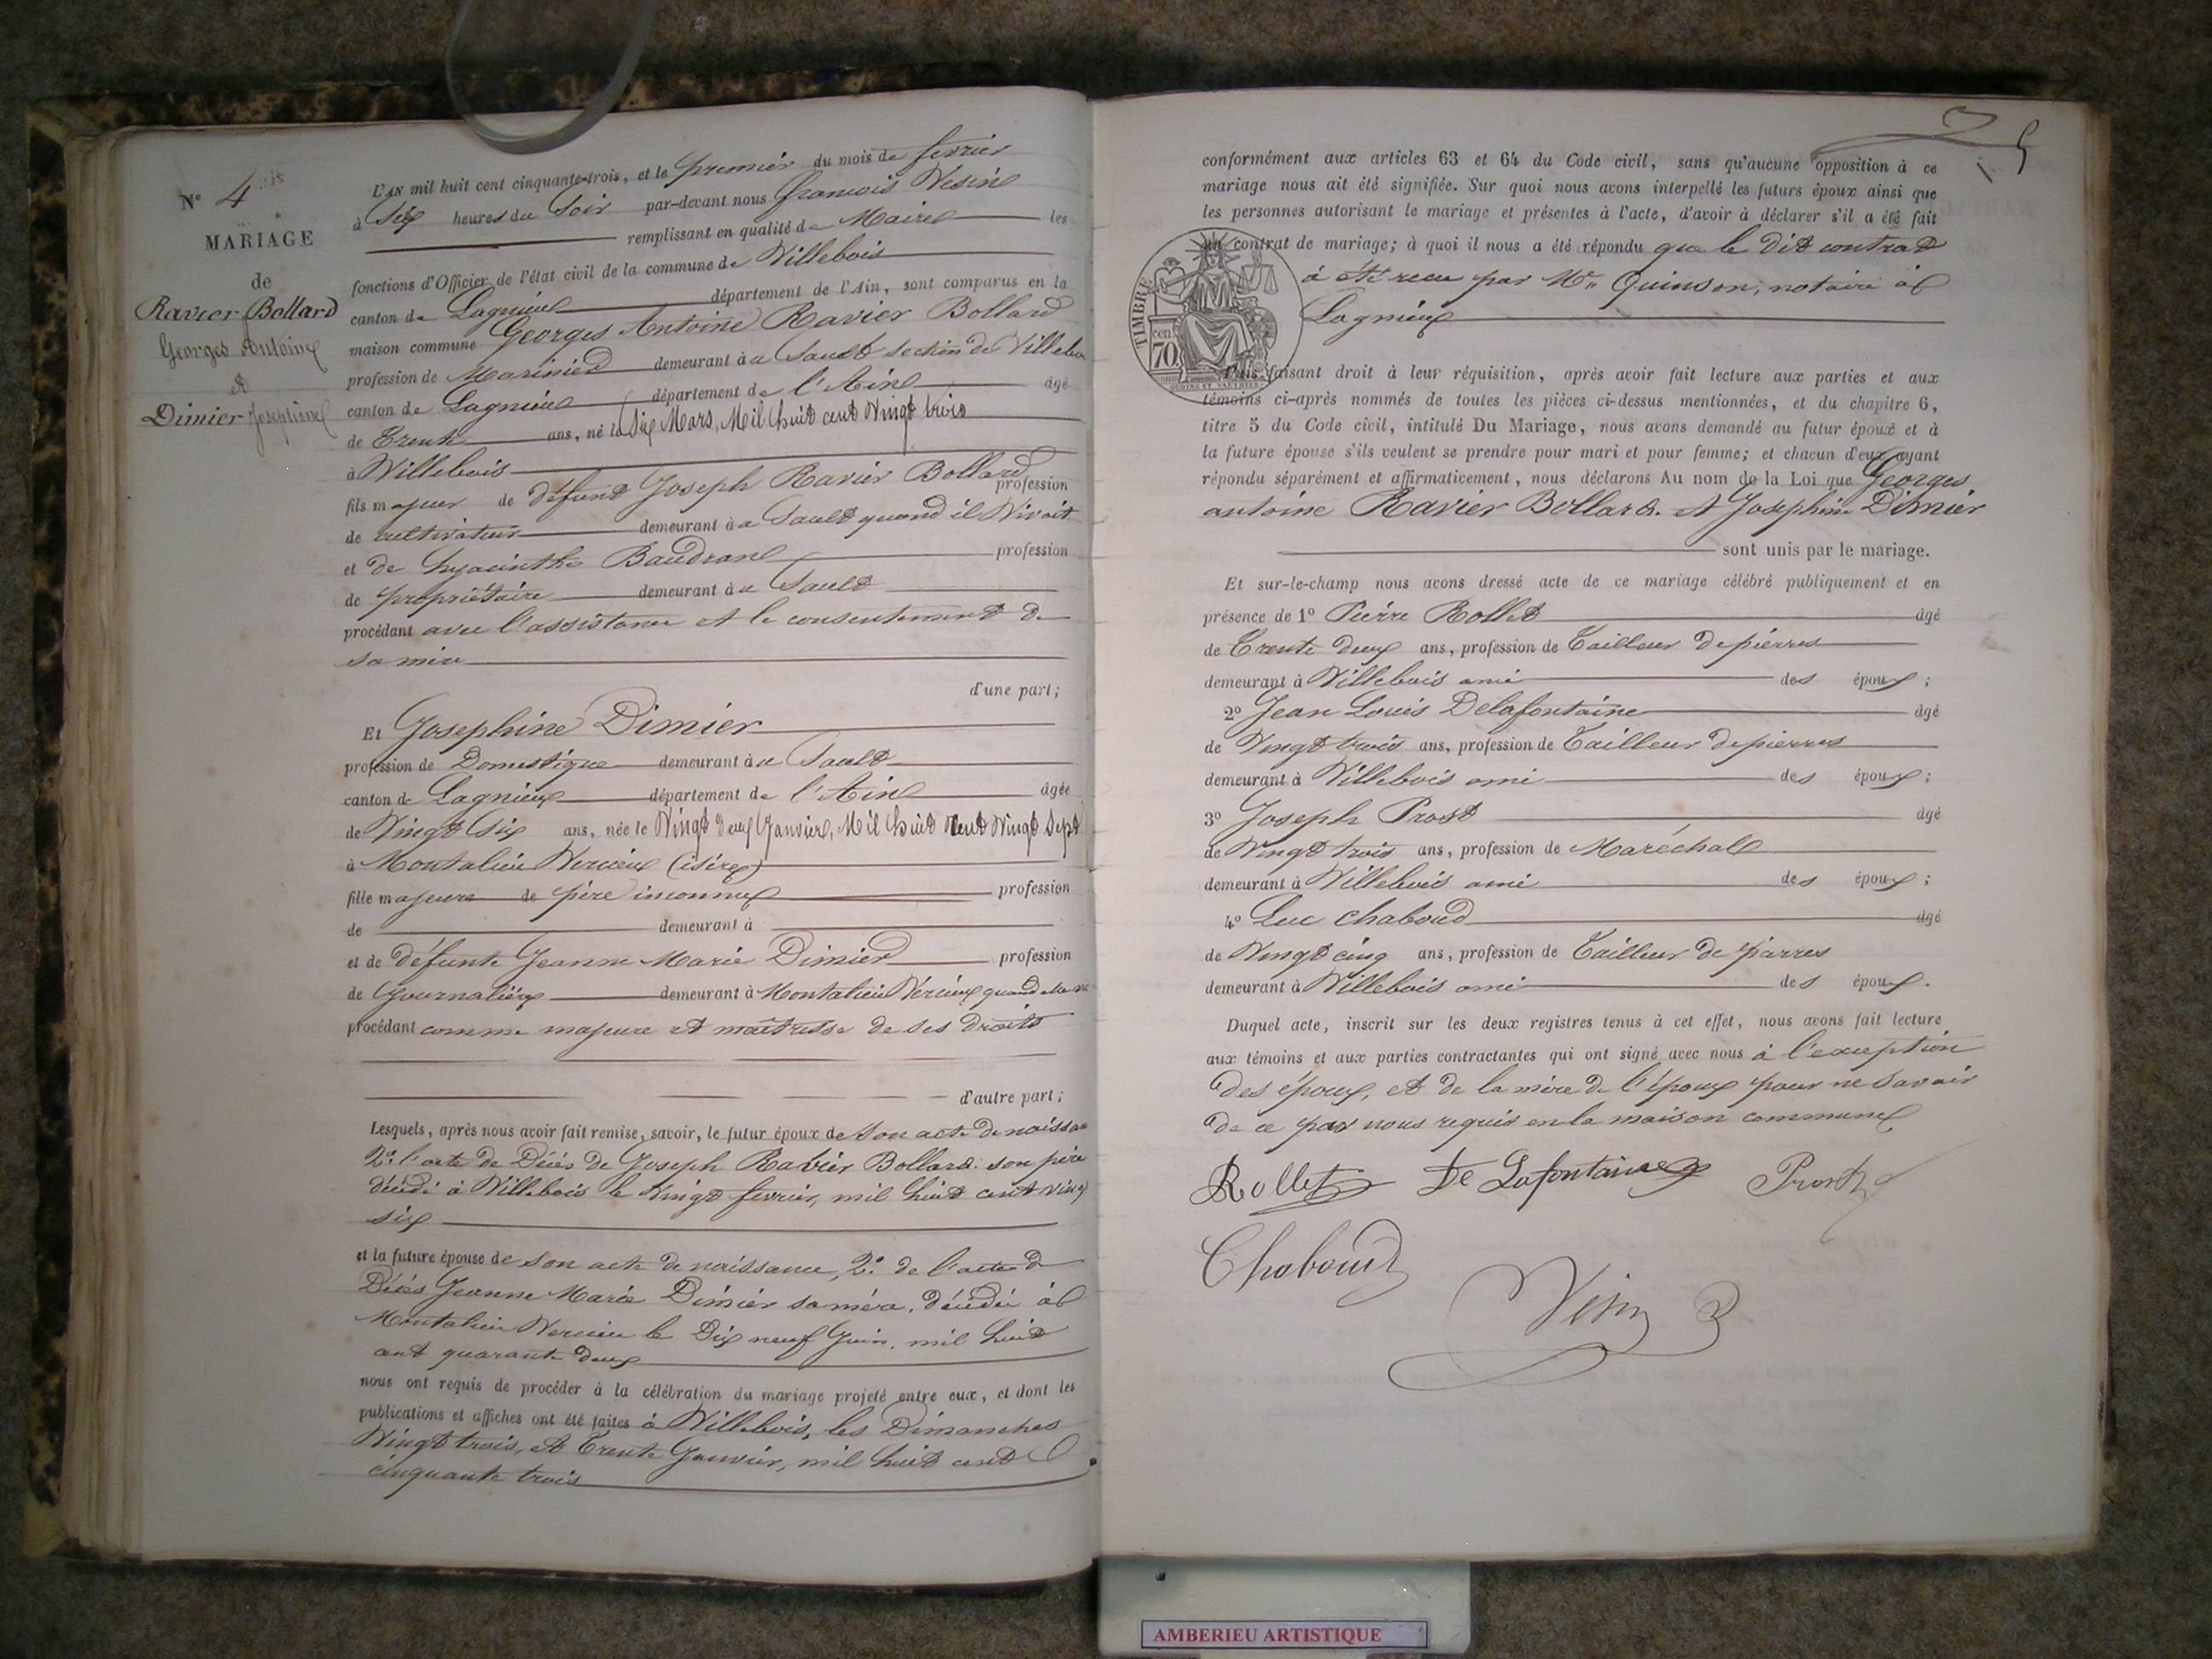 N° 4
MARIAGE
de
Ravier Bollard
Georges Antoine
et
Dimier Josephine
L'AN mil huit cent cinquante-trois, et le premier du mois de fevrier
à Six heures du Soir par-devant nous francois Vesin
remplissant en qualité de Maire les
fonctions d'Officier de l'état civil de la commune de Villebois
canton de Lagnieu département de l'Ain, sont comparus en la
maison commune Georges Antoine Ravier Bollard
profession de Marinier demeurant à a Sault section de Villebois
canton de Lagnieu département de l'Ain âgé
de Trente ans, né le Six Mars, Mil huit cent Vingt trois
à Villebois
fils majeur de défunt Joseph Ravier Bollard profession
de cultivateur demeurant à a Sault quand il Vivoit
et de hyacinthe Baudran profession
de propriétaire demeurant à a Sault
procédant avec l'assistance et le consentement de
sa mère
d'une part;
Et Josephine Dimier
profession de Domestique demeurant à a Sault
canton de Lagnieu département de l'Ain âgée
de Vingt Six ans, née le Vingt deux Janvier, Mil huit Cent Vingt Sept
à Montalieu Vercieu (isère)
fille majeure de père inconnu profession
de demeurant à
et de défunte Jeanne Marie Dimier profession
de Journalière demeurant à Montalieu Vercieu quand elle
procédant comme majeure et maîtresse de ses droits
d'autre part;
Lesquels, après nous avoir fait remise, savoir, le futur époux de son acte de naissan
2° l'acte de Décès de Joseph Ravier Bollard son père
décédé à Villebois le Vingt fevrier, mil huit cent vingt
six
et la future épouse de son acte de naissance, 2° de l'acte de
Décès Jeanne Marie Dimier sa mère, décédée à
Montalieu Vercieu le Dix neuf Juin, mil huit
cent quarante deux
nous ont requis de procéder à la célébration du mariage projeté entre eux, et dont les
publications et affiches ont été faites à Villebois, les Dimanches
Vingt trois, et Trente Janvier, mil huit cent
cinquante trois
5
conformément aux articles 63 et 64 du Code civil, sans qu'aucune opposition à ce
mariage nous ait été signifiée. Sur quoi nous avons interpellé les futurs époux ainsi que
les personnes autorisant le mariage et présentes à l'acte, d'avoir à déclarer s'il a été fait
un contrat de mariage; à quoi il nous a été répondu que le dit contrat
à été recu par Me Quinson, notaire à
Lagnieu
TIMBRE
cen
70
Puis faisant droit à leur réquisition, après avoir fait lecture aux parties et aux
témoins ci-après nommés de toutes les pièces ci-dessus mentionnées, et du chapitre 6,
titre 5 du Code civil, intitulé Du Mariage, nous avons demandé au futur époux et à
la future épouse s'ils veulent se prendre pour mari et pour femme; et chacun d'eux ayant
répondu séparément et affirmativement, nous déclarons Au nom de la Loi que Georges
antoine Ravier Bollard. et Josephine Dimier
sont unis par le mariage.
Et sur-le-champ nous avons dressé acte de ce mariage célébré publiquement et en
présence de 1° Pierre Rollet âgé
de Trente deux ans, profession de Tailleur de pierres
demeurant à Villebois ami des époux;
2° Jean Louis Delafontaine âgé
de Vingt trois ans, profession de Tailleur de pierres
demeurant à Villebois ami des époux;
3° Joseph Prost âgé
de Vingt trois ans, profession de Maréchall
demeurant à Villebois ami des époux;
4° Luc Chaboud âgé
de Vingt cinq ans, profession de Tailleur de piarres
demeurant à Villebois ami des époux.
Duquel acte, inscrit sur les deux registres tenus à cet effet, nous avons fait lecture
aux témoins et aux parties contractantes qui ont signé avec nous à l'exception
des époux, et de la mère de l'époux pour ne savoir
de ce par nous requis en la maison commune
Rollet De Lafontaine Prost
Chaboud
Vesin
AMBERIEU ARTISTIQUE